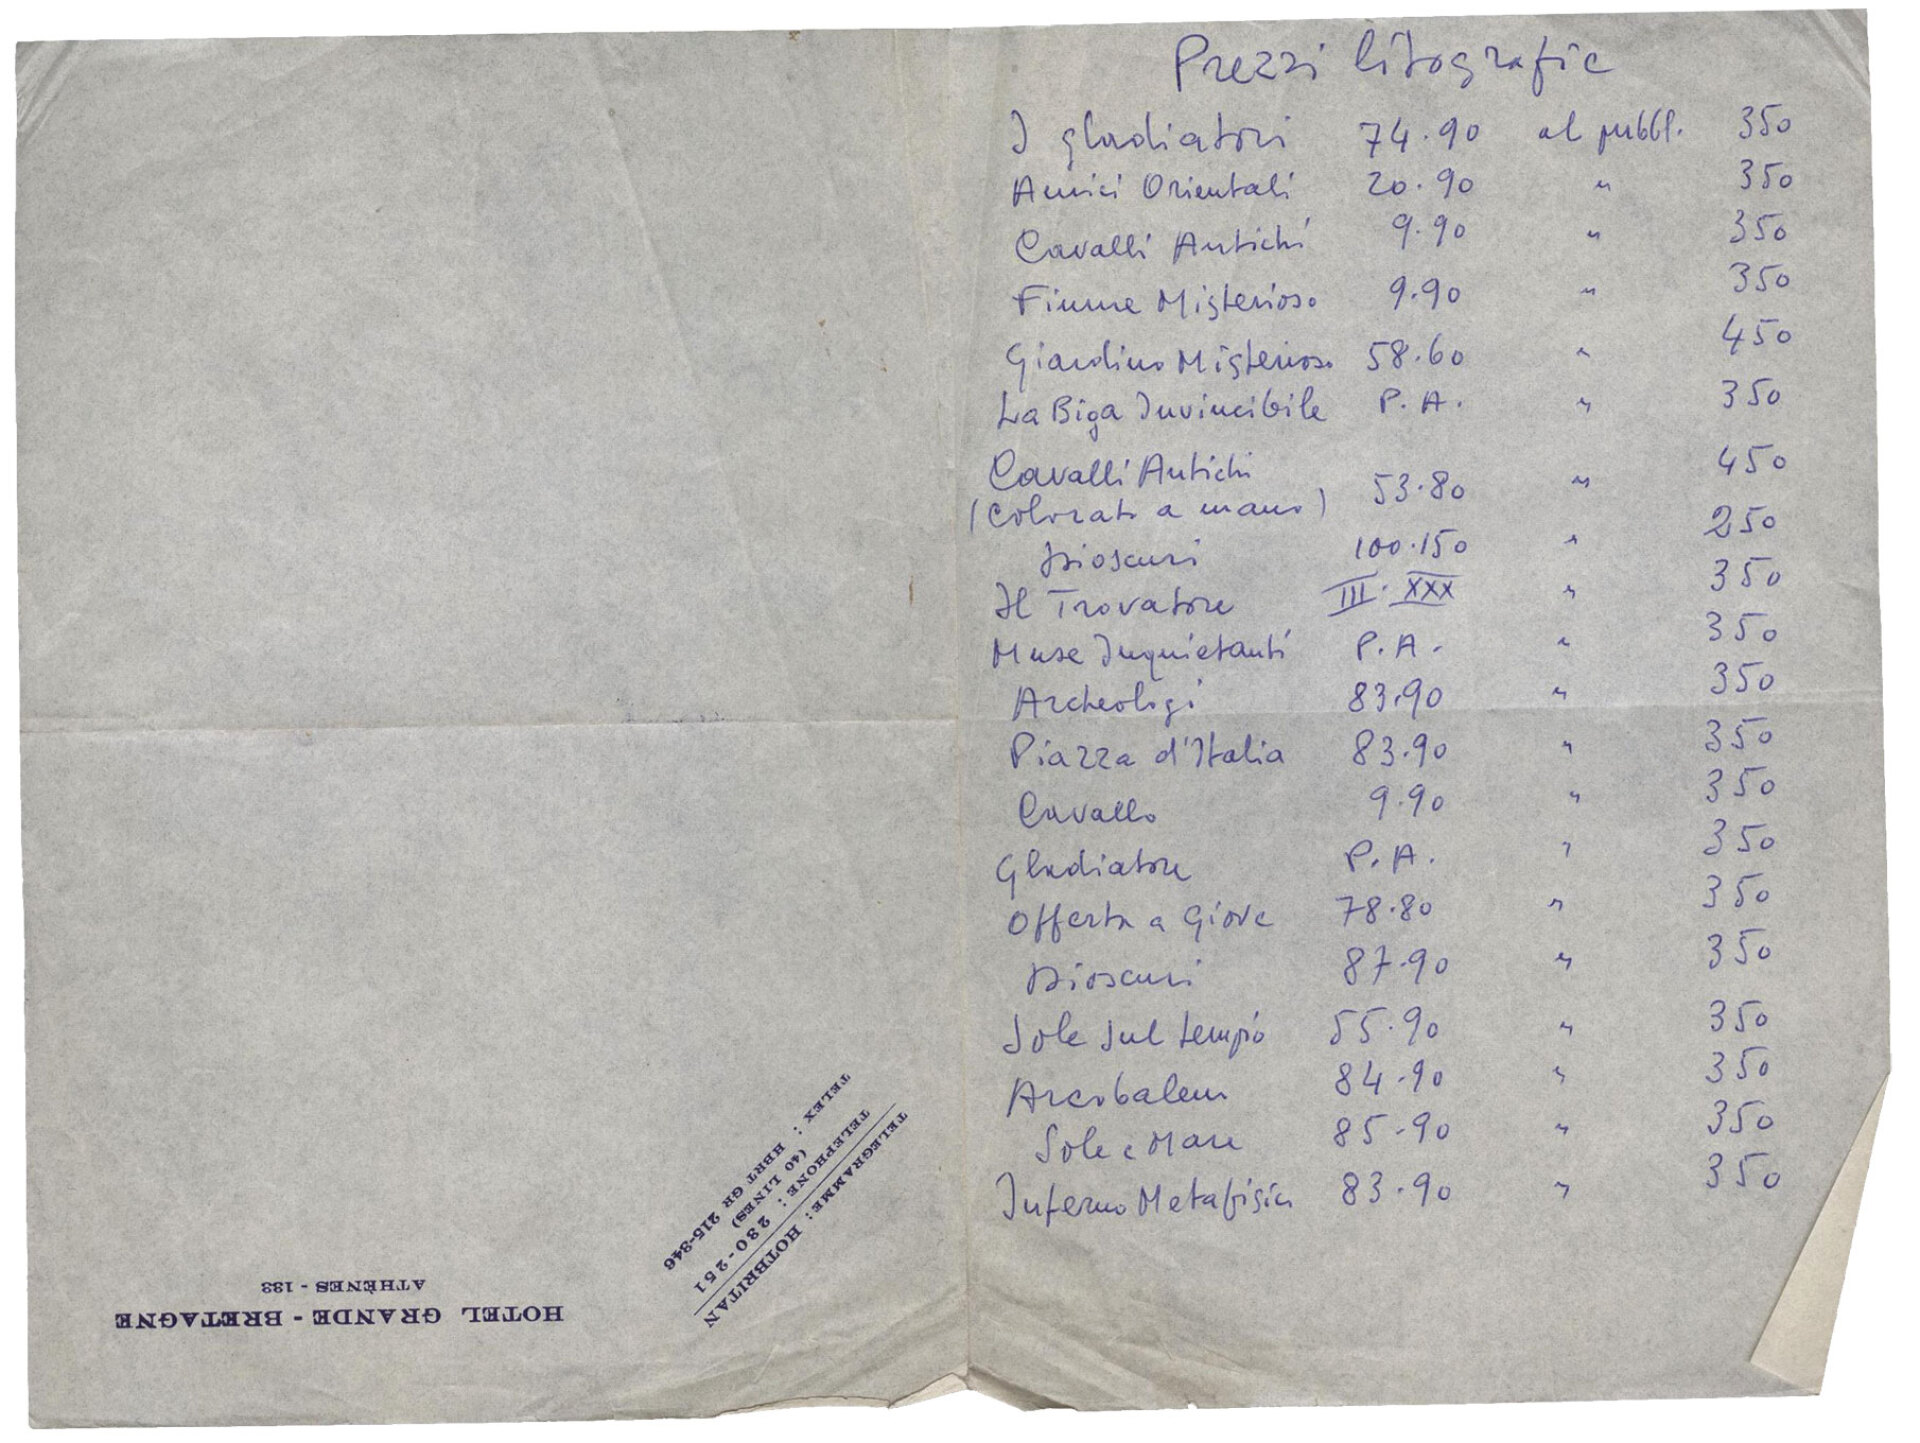 Prezzi litografie
I gladiatori 74.90 al pubbl. 350
Amici Orientali 20.90 " 350
Cavalli Antichi 9.90 " 350
Fiume Misterioso 9.90 " 350
Giardino Misterioso 58.60 " 450
La Biga Invincibile P.A. " 350
Cavalli Antichi
(colorato a mano) 53.80 " 450
Dioscuri 100.150 " 250
Il Trovatore III. XXX " 350
Muse Inquietanti P.A. " 350
Archeologi 83.90 " 350
Piazza d'Italia 83.90 " 350
Cavallo 9.90 " 350
Gladiatore P.A. " 350
Offerta a Giove 78.80 " 350
Dioscuri 87.90 " 350
Sole sul tempio 55.90 " 350
Arcobaleno 84.90 " 350
Sole e Mare 85.90 " 350
Inferno Metafisico 83.90 " 350
HOTEL GRANDE - BRETAGNE
ATHÈNES - 133
TELEGRAMME: HOTBRITAN
TELEPHONE : 230-251
(40 LINES)
TELEX : HBRT GR 215-346